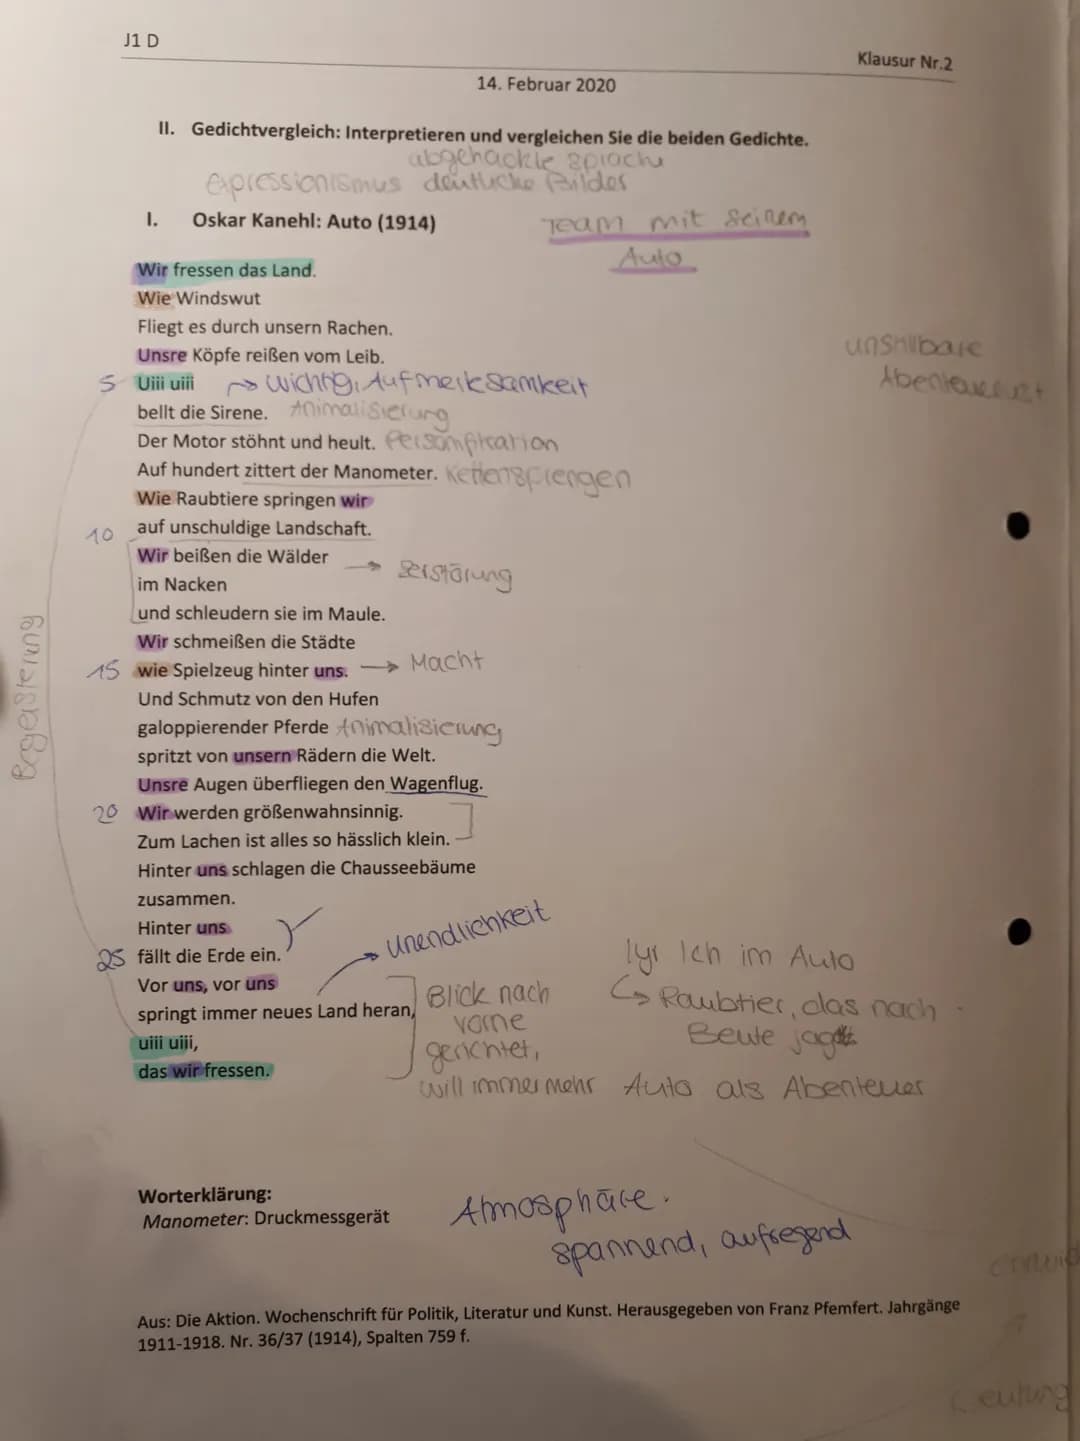 J1 D
Klausur Nr.2
14. Februar 2020
II. Gedichtvergleich: Interpretieren und vergleichen Sie die beiden Gedichte.
abgehackte Sprache
Expressionismus deutliche Bilder
I. Oskar Kanehl: Auto (1914)
Team mit seinem
Auto
Wir fressen das Land.
Wie Windswut
Fliegt es durch unsern Rachen.
Unsre Köpfe reißen vom Leib.
unstillbare
Abenteuerlust
5 Uiii uiii → wichtig, Aufmerksamkeit
bellt die Sirene. Animalisierung
Der Motor stöhnt und heult. Personifikation
Auf hundert zittert der Manometer. Kettensprengen
Wie Raubtiere springen wir
10 auf unschuldige Landschaft.
Wir beißen die Wälder
im Nacken → Zerstörung
und schleudern sie im Maule.
Begeisterung
Wir schmeißen die Städte
15 wie Spielzeug hinter uns. → Macht
Und Schmutz von den Hufen
galoppierender Pferde Animalisierung
spritzt von unsern Rädern die Welt.
Unsre Augen überfliegen den Wagenflug.
20 Wir werden größenwahnsinnig.
Zum Lachen ist alles so hässlich klein.
Hinter uns schlagen die Chausseebäume
zusammen.
Hinter uns
25 fällt die Erde ein.
→ Unendlichkeit
Vor uns, vor uns
springt immer neues Land heran,
uiii uiii,
das wir fressen.
Blick nach
vorne
gerichtet,
will immer mehr
lyr Ich im Auto
↳ Raubtier, das nach
Beute jagt
Auto als Abenteuer
Worterklärung:
Manometer: Druckmessgerät
Atmosphäre.
spannend, aufregend
Aus: Die Aktion. Wochenschrift für Politik, Literatur und Kunst. Herausgegeben von Franz Pfemfert. Jahrgänge
1911-1918. Nr. 36/37 (1914), Spalten 759 f.